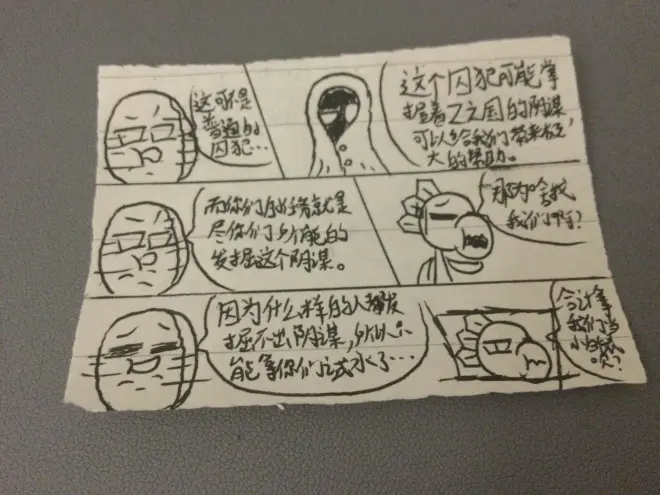 这可不是
普通的
囚犯…
这个囚犯可能掌
握着Z之国的阴谋
可以给我们带来极
大的帮助。
而你们的任务就是
尽你们所能的
发掘这个阴谋。
那为啥找
我们啊?
因为什么样的人都发
掘不出阴谋,所以只
能拿你们试试水了…
合计拿
我们当
小白鼠
呗?